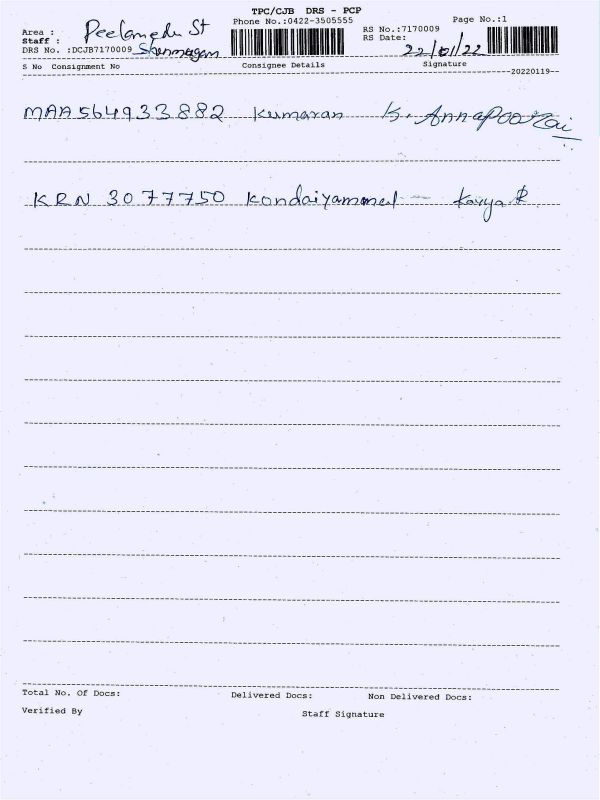 TPC/CJB DRS - PCP
Phone No.:0422-3505555 Page No.:1
Area : Peelamedu St RS No.:7170009
Staff : Shanmugam RS Date: 22/01/22
DRS No. :DCJB7170009
S No Consignment No Consignee Details Signature
20220119
MAA564933882 Kumaran K. Annapoorai
KRN 3077750 Kondaiyammal - Kavya R
Total No. Of Docs: Delivered Docs: Non Delivered Docs:
Verified By Staff Signature